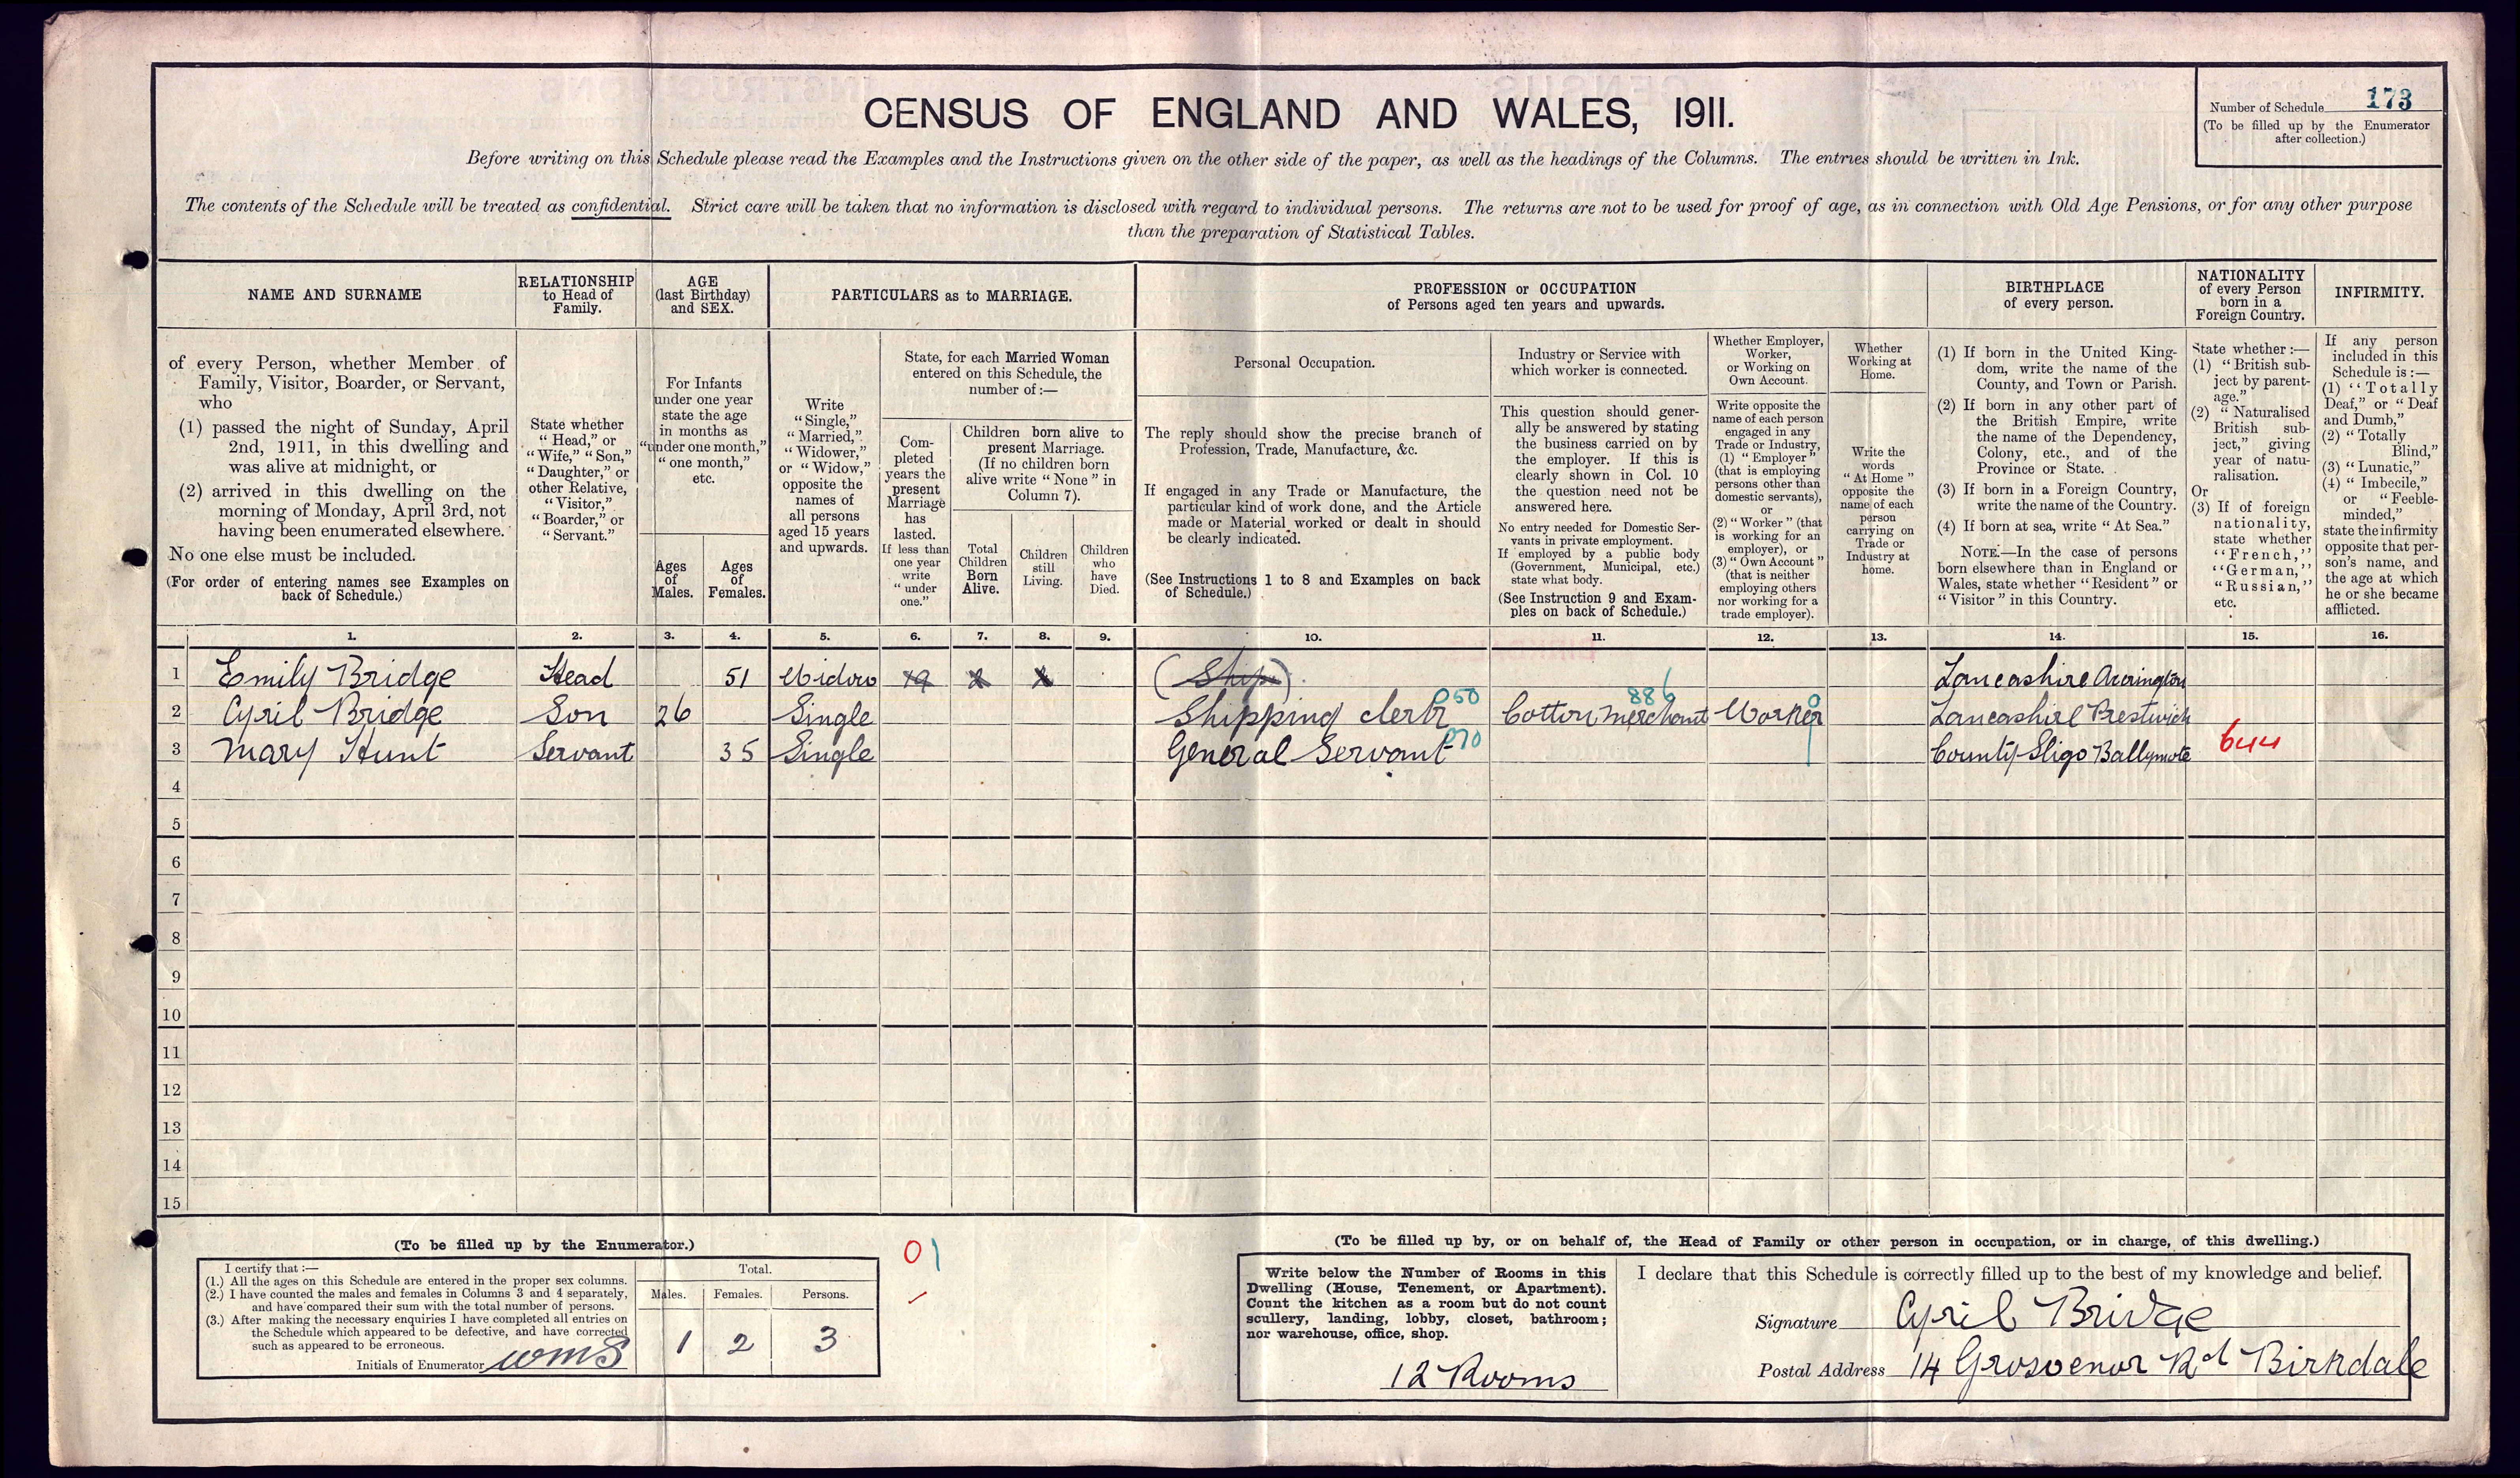 CENSUS OF ENGLAND AND WALES, 1911.
Number of Schedule 173
(To be filled up by the Enumerator
after collection.)
Before writing on this Schedule please read the Examples and the Instructions given on the other side of the paper, as well as the headings of the Columns. The entries should be written in Ink.
The contents of the Schedule will be treated as confidential. Strict care will be taken that no information is disclosed with regard to individual persons. The returns are not to be used for proof of age, as in connection with Old Age Pensions, or for any other purpose
than the preparation of Statistical Tables.
NAME AND SURNAME
of every Person, whether Member of
Family, Visitor, Boarder, or Servant,
who
(1) passed the night of Sunday, April
2nd, 1911, in this dwelling and
was alive at midnight, or
(2) arrived in this dwelling on the
morning of Monday, April 3rd, not
having been enumerated elsewhere.
No one else must be included.
(For order of entering names see Examples on
back of Schedule.)
RELATIONSHIP
to Head of
Family.
State whether
"Head," or
"Wife," "Son,"
"Daughter," or
other Relative,
"Visitor,"
"Boarder," or
"Servant."
AGE
(last Birthday)
and SEX.
For Infants
under one year
state the age
in months as
"under one month,"
"one month,"
etc.
Ages
of
Males.
Ages
of
Females.
PARTICULARS as to MARRIAGE.
Write
"Single,"
"Married,"
"Widower,"
or "Widow,"
opposite the
names of
all persons
aged 15 years
and upwards.
State, for each Married Woman
entered on this Schedule, the
number of:—
Com-
pleted
years the
present
Marriage
has
lasted.
If less than
one year
write
"under
one."
Children born alive to
present Marriage.
(If no children born
alive write "None" in
Column 7).
Total
Children
Born
Alive.
Children
still
Living.
Children
who
have
Died.
PROFESSION or OCCUPATION
of Persons aged ten years and upwards.
Personal Occupation.
The reply should show the precise branch of
Profession, Trade, Manufacture, &c.
If engaged in any Trade or Manufacture, the
particular kind of work done, and the Article
made or Material worked or dealt in should
be clearly indicated.
(See Instructions 1 to 8 and Examples on back
of Schedule.)
Industry or Service with
which worker is connected.
This question should gener-
ally be answered by stating
the business carried on by
the employer. If this is
clearly shown in Col. 10
the question need not be
answered here.
No entry needed for Domestic Ser-
vants in private employment.
If employed by a public body
(Government, Municipal, etc.)
state what body.
(See Instruction 9 and Exam-
ples on back of Schedule.)
Whether Employer,
Worker,
or Working on
Own Account.
Write opposite the
name of each person
engaged in any
Trade or Industry,
(1) "Employer"
(that is employing
persons other than
domestic servants),
or
(2) "Worker" (that
is working for an
employer), or
(3) "Own Account"
(that is neither
employing others
nor working for a
trade employer).
Whether
Working at
Home.
Write the
words
"At Home"
opposite the
name of each
person
carrying on
Trade or
Industry at
home.
BIRTHPLACE
of every person.
(1) If born in the United King-
dom, write the name of the
County, and Town or Parish.
(2) If born in any other part of
the British Empire, write
the name of the Dependency,
Colony, etc., and of the
Province or State.
(3) If born in a Foreign Country,
write the name of the Country.
(4) If born at sea, write "At Sea."
NOTE.—In the case of persons
born elsewhere than in England or
Wales, state whether "Resident" or
"Visitor" in this Country.
NATIONALITY
of every Person
born in a
Foreign Country.
State whether :—
(1) "British sub-
ject by parent-
age."
(2) "Naturalised
British sub-
ject," giving
year of natu-
ralisation.
Or
(3) If of foreign
nationality,
state whether
"French,"
"German,"
"Russian,"
etc.
INFIRMITY.
If any person
included in this
Schedule is:—
(1) "Totally
Deaf," or "Deaf
and Dumb,"
(2) "Totally
Blind,"
(3) "Lunatic,"
(4) "Imbecile,"
or "Feeble-
minded,"
state the infirmity
opposite that per-
son's name, and
the age at which
he or she became
afflicted.
1. 2. 3. 4. 5. 6. 7. 8. 9. 10. 11. 12. 13. 14. 15. 16.
1 Emily Bridge Head 51 Widow 19 (Ship) Lancashire Accrington
2 Cyril Bridge Son 26 Single Shipping clerk 050 Cotton Merchant 886 Worker Lancashire Prestwich
3 Mary Hunt Servant 35 Single General Servant 070 County Sligo Ballymote 644
4
5
6
7
8
9
10
11
12
13
14
15
(To be filled up by the Enumerator.)
I certify that:—
(1.) All the ages on this Schedule are entered in the proper sex columns.
(2.) I have counted the males and females in Columns 3 and 4 separately,
and have compared their sum with the total number of persons.
(3.) After making the necessary enquiries I have completed all entries on
the Schedule which appeared to be defective, and have corrected
such as appeared to be erroneous.
Initials of Enumerator WMS
Total.
Males. Females. Persons.
1 2 3
01
(To be filled up by, or on behalf of, the Head of Family or other person in occupation, or in charge, of this dwelling.)
Write below the Number of Rooms in this
Dwelling (House, Tenement, or Apartment).
Count the kitchen as a room but do not count
scullery, landing, lobby, closet, bathroom;
nor warehouse, office, shop.
12 Rooms
I declare that this Schedule is correctly filled up to the best of my knowledge and belief.
Signature Cyril Bridge
Postal Address 14 Grosvenor Rd Birkdale